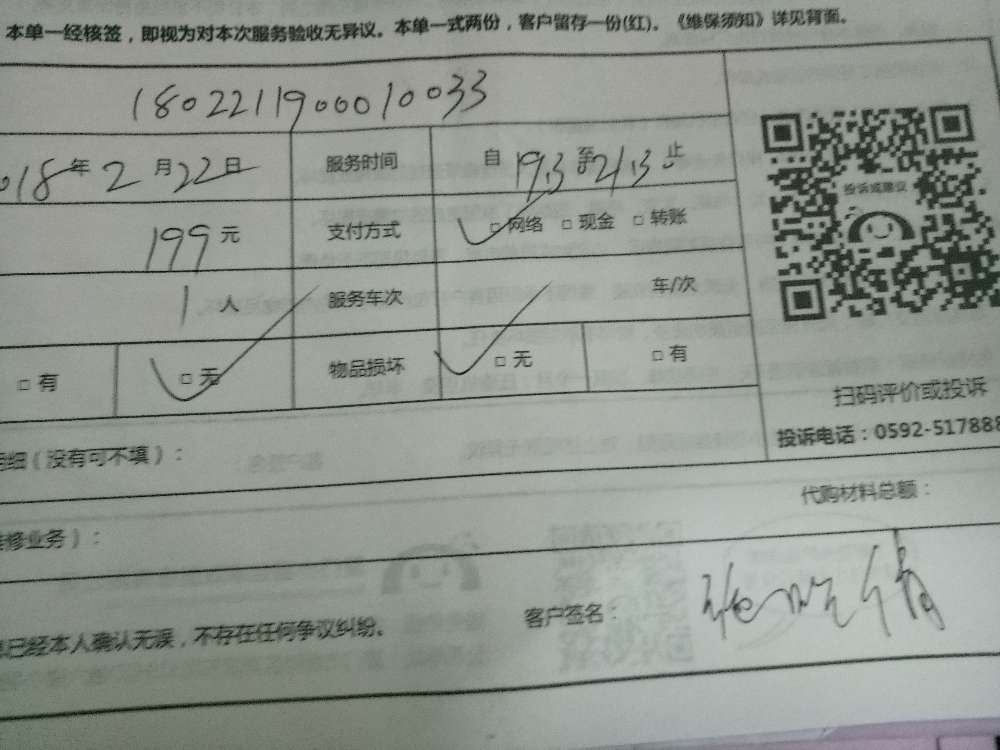 本单一经核签，即视为对本次服务验收无异议。本单一式两份，客户留存一份(红)。《维保须知》详见背面。
180221190001 0033
018年2月22日 服务时间 自19.3至21.3止
199元 支付方式 □网络 □现金 □转账
1人 服务车次 车/次
□有 □无 物品损坏 □无 □有
投诉或建议
扫码评价或投诉
投诉电话：0592-517888
明细（没有可不填）：
代购材料总额：
维修业务）：
客户签名：
息已经本人确认无误，不存在任何争议纠纷。